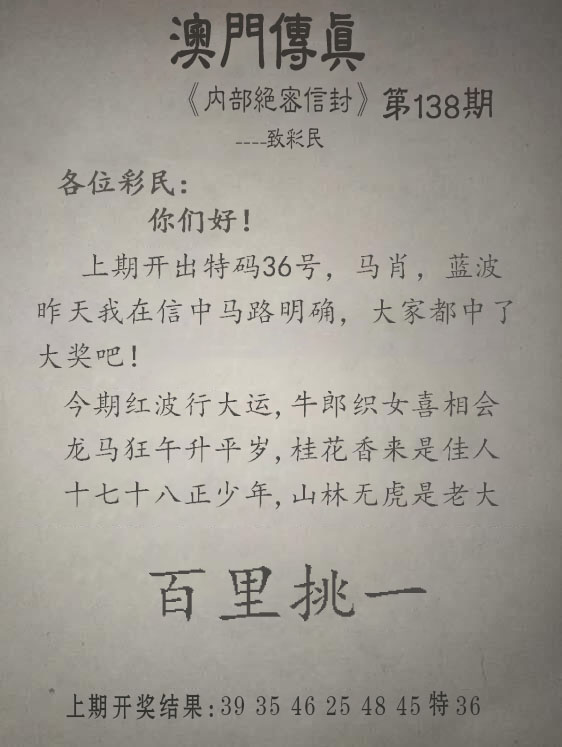 澳門傳眞
《内部絕密信封》第138期
----致彩民
各位彩民：
你们好！
上期开出特码36号，马肖，蓝波
昨天我在信中马路明确，大家都中了
大奖吧！
今期红波行大运,牛郎织女喜相会
龙马狂午升平岁,桂花香来是佳人
十七十八正少年,山林无虎是老大
百里挑一
上期开奖结果:39 35 46 25 48 45 特 36